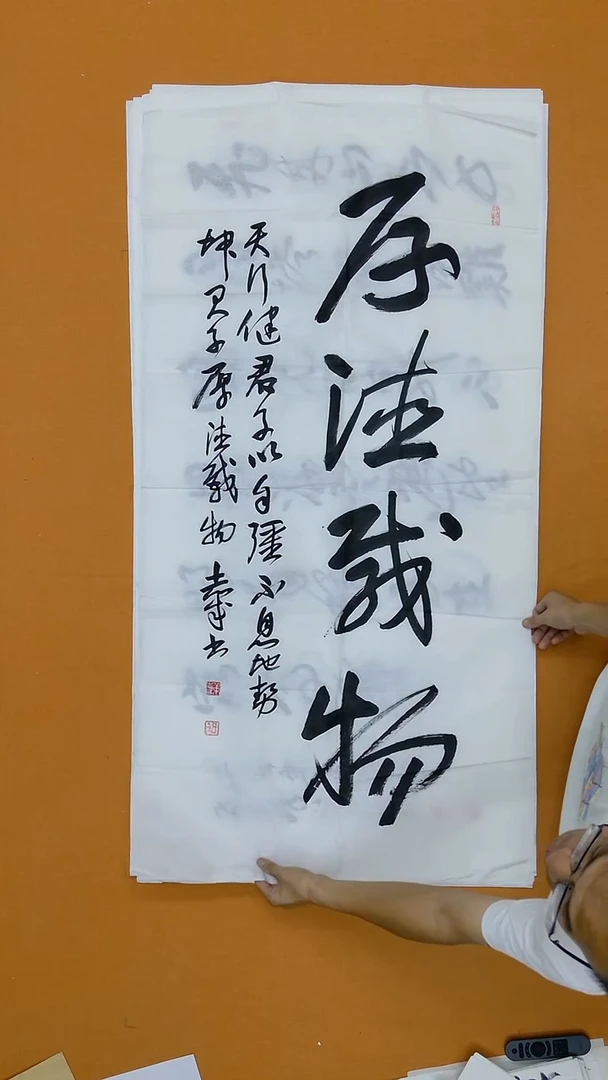 厚德载物
天行健君子以自强不息地势
坤君子厚德载物
书